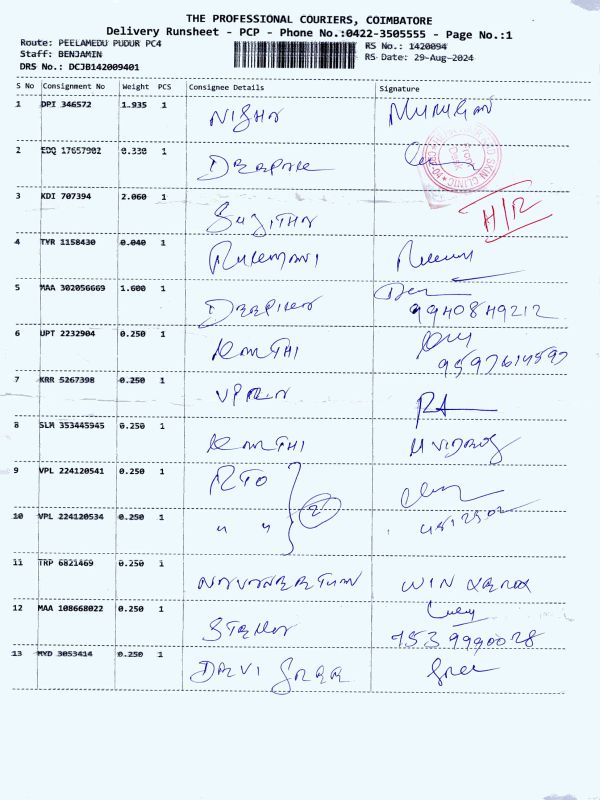 THE PROFESSIONAL COURIERS, COIMBATORE
Delivery Runsheet - PCP - Phone No.:0422-3505555 - Page No.:1
Route: PEELAMEDU PUDUR PC4
Staff: BENJAMIN
DRS No.: DCJB142009401
RS No.: 1420094
RS Date: 29-Aug-2024
S No Consignment No Weight PCS Consignee Details Signature
1 DPI 346572 1.935 1 NISHA MURUGAN
2 EDQ 17657902 0.330 1 DEEPAK
SKIN CLINIC
3 KDI 707394 2.060 1 SUJITHA H/R
4 TYR 1158430 0.040 1 RUKMANI
5 MAA 302056669 1.600 1 DEEPIKA 9940849212
6 UPT 2232904 0.250 1 KEERTHI
7 KRR 5267398 0.250 1
8 SLM 353445945 0.250 1 KEERTHI
9 VPL 224120541 0.250 1 RTO
10 VPL 224120534 0.250 1 " " 2
11 TRP 6821469 0.250 1 NAVANEETHAN WIN XEROX
12 MAA 108668022 0.250 1 STELLA 7539990028
13 MYD 3053414 0.250 1 DEVI SREE Sree